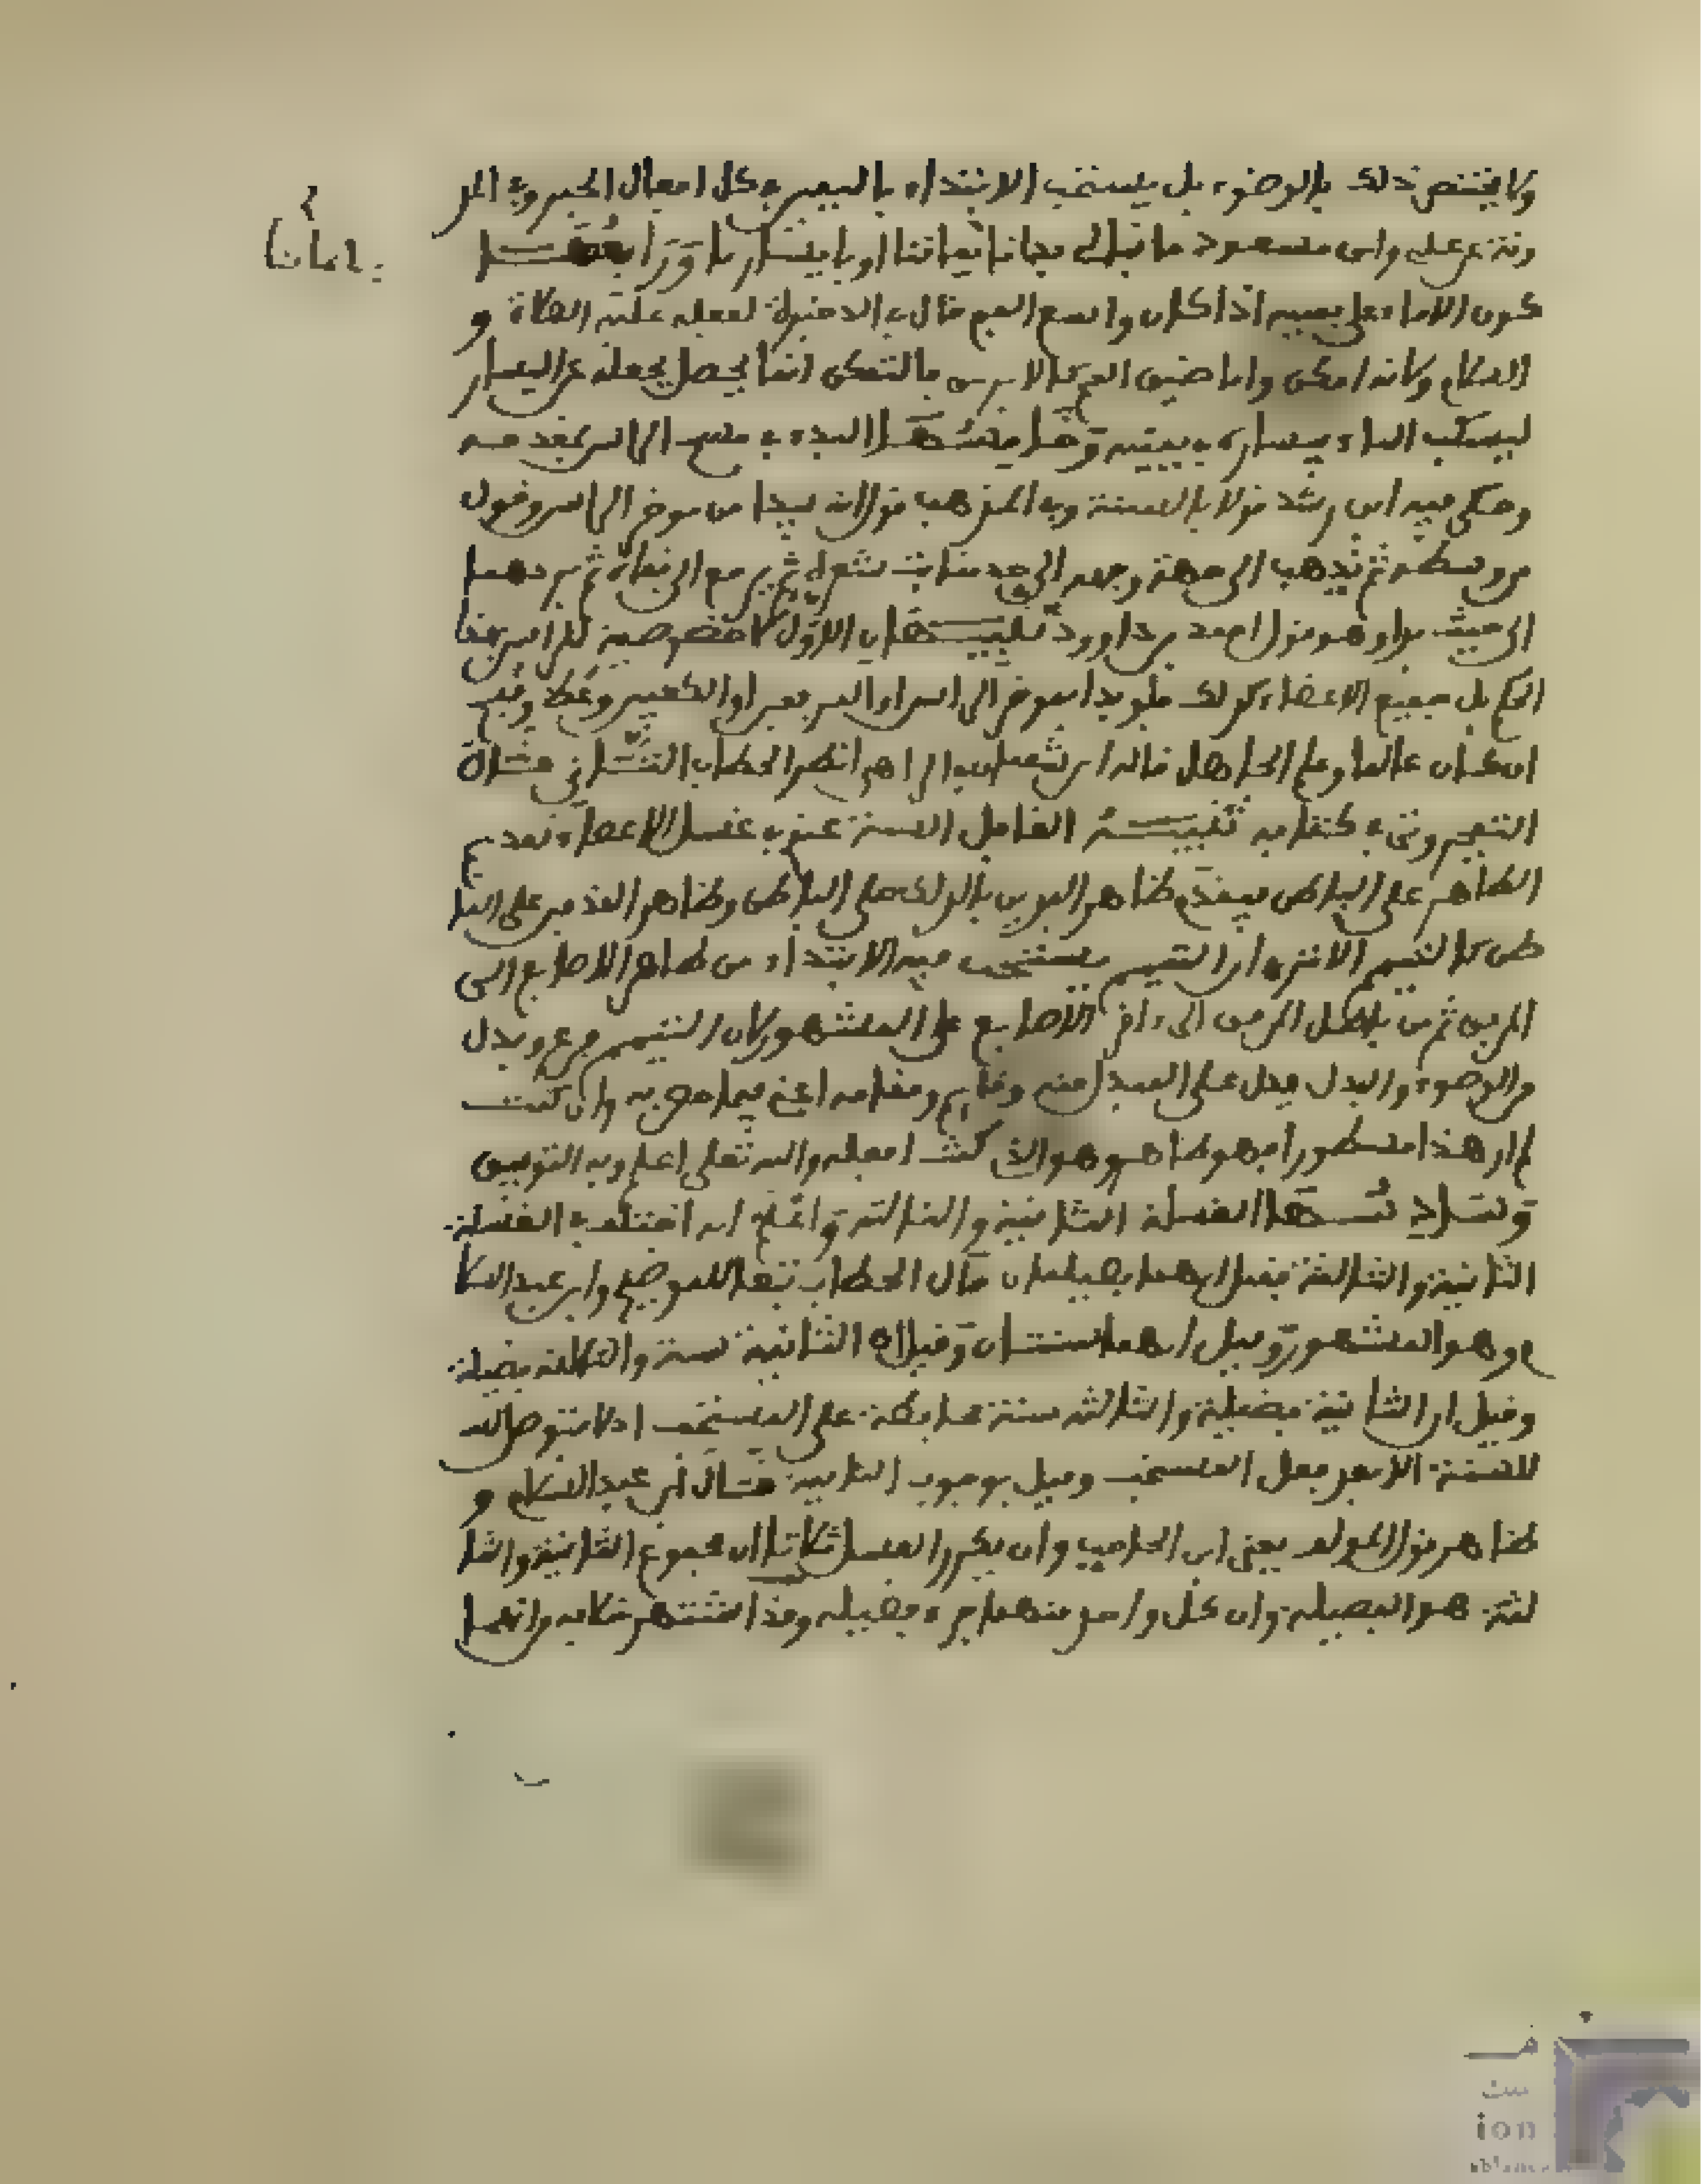 ولا يختص ذلك بالوضوء بل يستحب الابتداء باليمين في كل افعال الخير وفي المد
ونة عن علي وابن مسعود ما نبالي بدانا بايماننا او بايسارنا وَرَابعُهَا
كون الاناء على يمينه اذا كان واسع الفم قال في الذخيرة لفعله عليه الصلاة و
السلام ولانه امكن واما ضيق الفم كالابريق فالتمكن انما يحصل بجعله عن اليسار
ليسكب الماء بيساره في يمينه وَخَامِسُهَا البدء في مسح الراس بمقدمه
وحكى فيه ابن رشد قولا بالسنية وفي المذهب قول انه يبدا من موخر الراس وقول
من وسطه ثم يذهب الى جهة وجهه الى حد منابت شعره ثم يرجع الى قفاه ثم يردهما
الى حيث بدا وهو قول احمد بن داوود تنبيهان الاول لا خصوصية للراس بهذا
الحكم بل جميع الاعضاء كذلك فلو بدا بموخر الراس او المرفقين او الكعبين وعظ وقبح
ان كان عالما وعلم الجاهل قاله ابن شعبان في الزاهي انظر الحطاب الثاني مسالة
التيمم وفي كتابه تنبيه الغافل السنة عندي في غسل الاعضاء تقديم
الظاهر على الباطن فيقدم ظاهر اليدين بالدلك على الباطن وظاهر القدمين على البا
طن كالتيمم الا ترى ان التيمم يستحب فيه الابتداء من ظاهر الاصابع الى
المرفق ثم من باطن المرفق الى ءاخر الاصابع على المشهور لان التيمم فرع وبدل
من الوضوء والبدل يدل على المبدل منه وقايم مقامه اعني فيما هو به وان كنت
لم ار هذا مسطورا فهو ظاهر وهو الذي كنت افعله والله تعلى اعلم وبه التوفيق
وَسَادِسُهَا الغسلة الثانية والثالثة وَاعْلَم انه اختلف في الغسلة
الثانية والثالثة فقيل انهما فضيلتان قال الحطاب تبعا للتوضيح وابن عبد السلا
م وهو المشهور وَقيل انهما سنتان وَقيل ان الثانية سنة والثالثة فضيلة
وقيل ان الثانية فضيلة والثالثة سنة محافظة على المستحب اذ لا يتوصل
للسنة الا بعد فعل المستحب وقيل بوجوب الثانية قال ابن عبد السلام و
ظاهر قول المولف يعني ابن الحاجب وان يكرر الغسل ثلاثا ان مجموع الثانية والثا
لثة هو الفضيلة وان كل واحد منهما جزء فضيلة وقد اشتهر خلافه وانهما